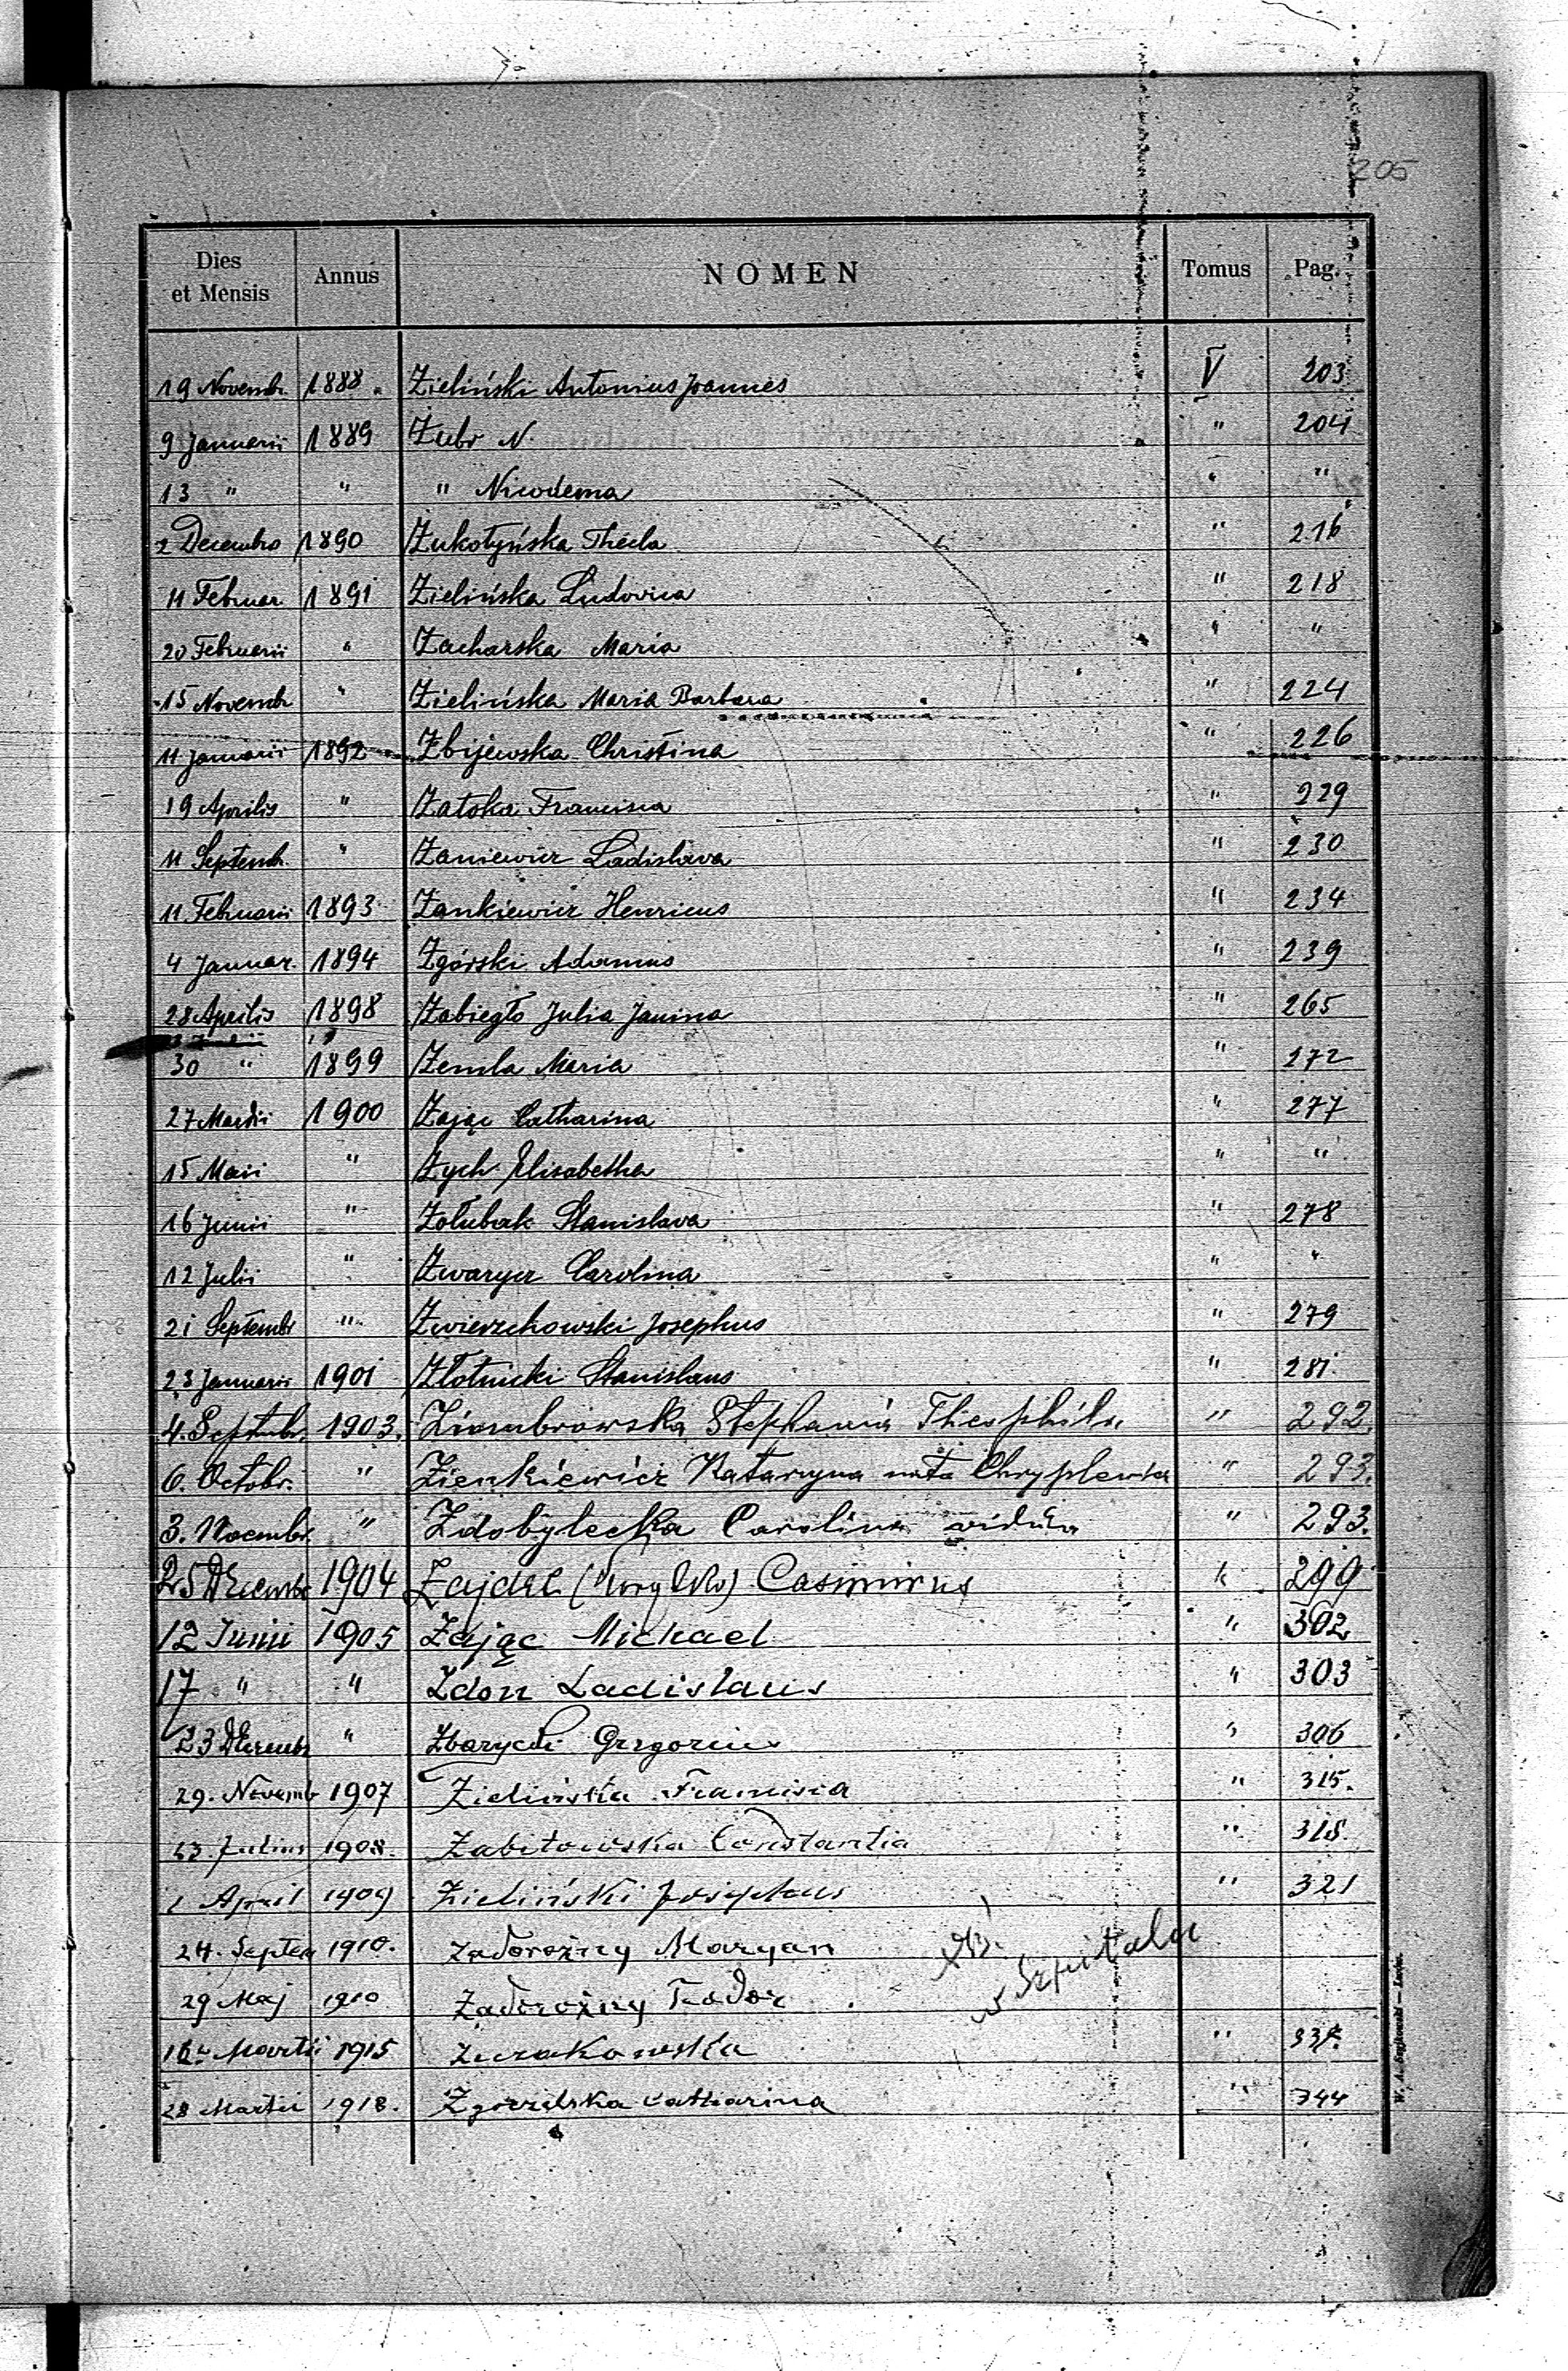 205
Dies et Mensis Annus NOMEN Tomus Pag.
19 Novembr. 1888. Zieliński Antonius Joannes V 203
9 Januarii 1889 Zubr N. " 204
13 " " " Nicodema " "
2 Decembris 1890 Żukotyńska Thecla " 216
11 Februar. 1891 Zielińska Ludovica " 218
20 Februarii " Zacharska Maria " "
15 Novembr " Zielińska Maria Barbara " 224
11 Januarii 1892 Zbijewska Christina " 226
19 Aprilis " Zatoka Francisca " 229
11 Septemb. " Zaniewicz Ladislava " 230
11 Februarii 1893 Zankiewicz Henricus " 234
4 Januar. 1894 Zgórski Adamus " 239
28 Aprilis 1898 Zabiegło Julia Janina " 265
30 " 1899 Zemla Maria " 272
27 Martii 1900 Zając Catharina " 277
15 Maii " Zych Elisabetha " "
16 Junii " Zołubak Stanislava " 278
12 Julii " Zwarycz Carolina " "
21 Septembr " Zwierzchowski Josephus " 279
23 Januarii 1901 Złotnicki Stanislaus " 281.
4. Septembr. 1903. Ziombrowska Stephania Theophila " 292.
6. Octobr. " Zienkiewicz Katarzyna nata Chryplewicz " 293.
3. Novembr. " Zdobylecka Carolina vidua " 293.
25 Decembr 1904 Zajdel Casimirus " 299
12 Junii 1905 Zając Michael " 302
17 " " Zdon Ladislaus " 303
23 Decembr " Zbarycki Gregorius " 306
29. Novemb 1907 Zielińska Francisca " 315.
23. Julius 1908. Zabitowska Constantia " 318.
1 April 1909 Zieliński Josephus " 321
24. Septem 1910. Zadorożny Maryan
29 Maj 1910 Zadorożny Teodor Szpitalu
16. Martii 1915 Zurakowska " 337.
28 Martii 1918. Zgorzelska Catharina " 344